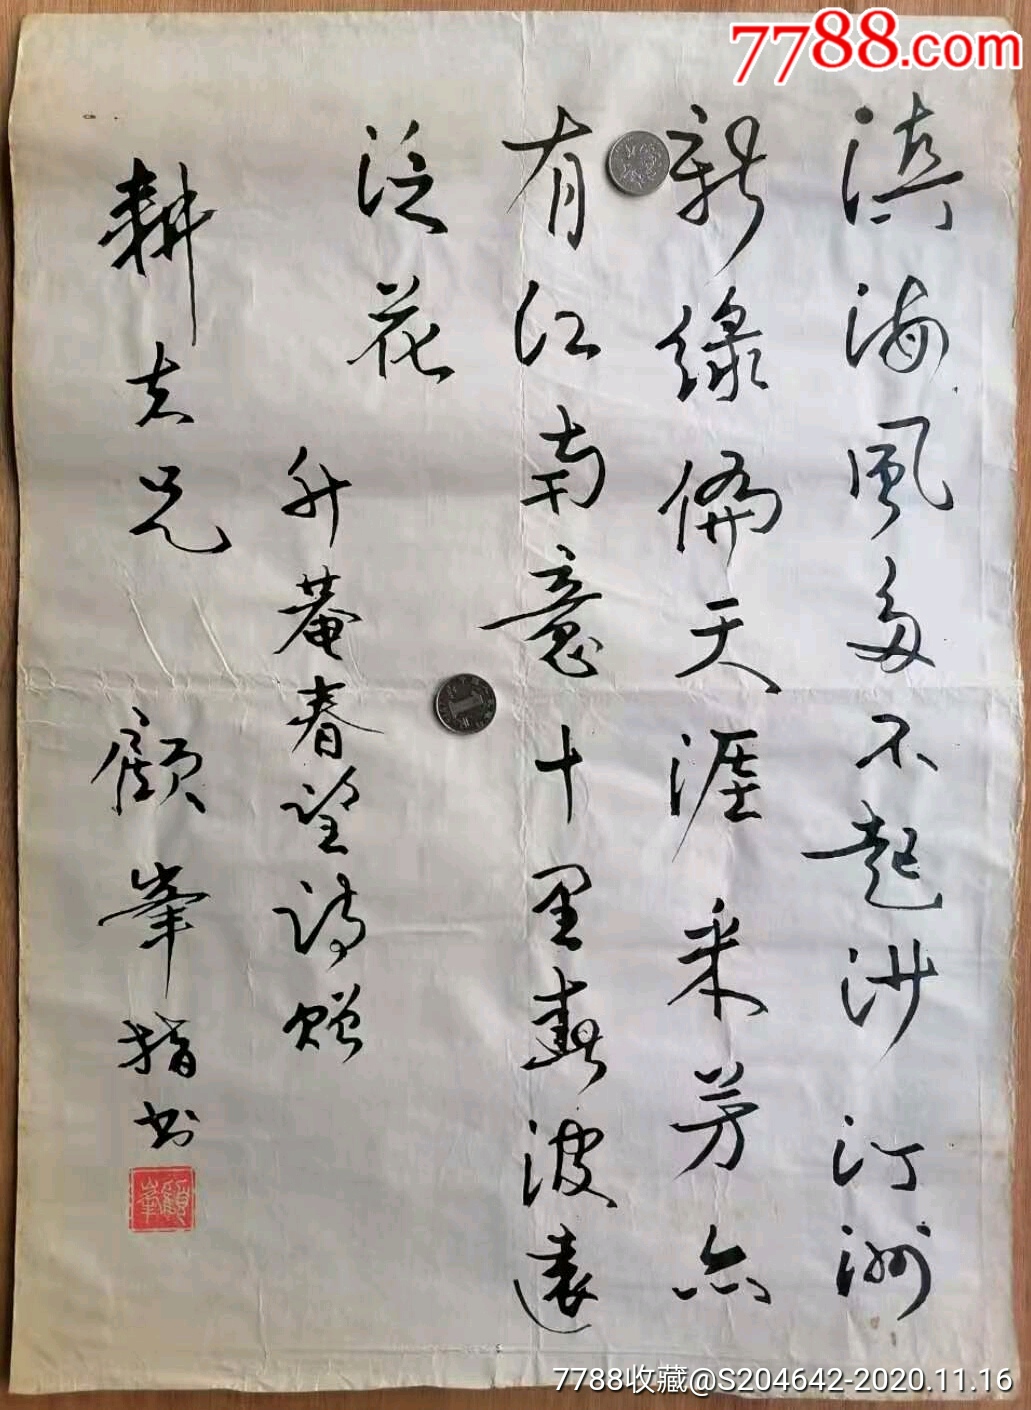 7788.com
滇海風多不起沙汀洲
新綠偏天涯采芳亦
有江南意十里春波遠
泛花
升菴春望詩贈
耕兄 顧峯指書
顧峯
7788收藏@S204642-2020.11.16